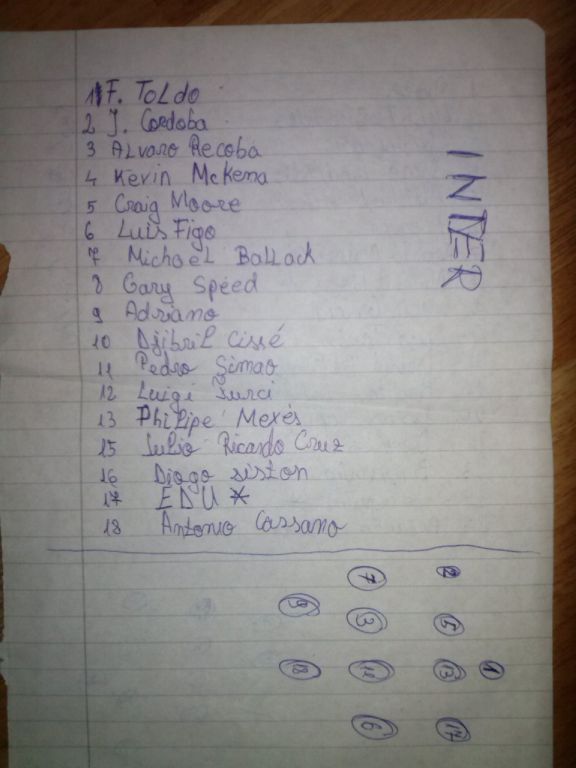 1 F. ToLdo
2 J. Cordoba
3 ALvaro Recoba
4 Kevin McKena
5 Craig Moore
6 Luis Figo
7 Michael BaLLack
8 Gary Speed
9 Adriano
10 DjibriL Cissé
11 Pedro Simao
12 Luigi Turci
13 PhiLipe Mexés
15 Julio Ricardo Cruz
16 Diogo siston
17 EDU *
18 Antonio Cassano
INTER
7 2
9 3 5
18 11 13 1
6 17